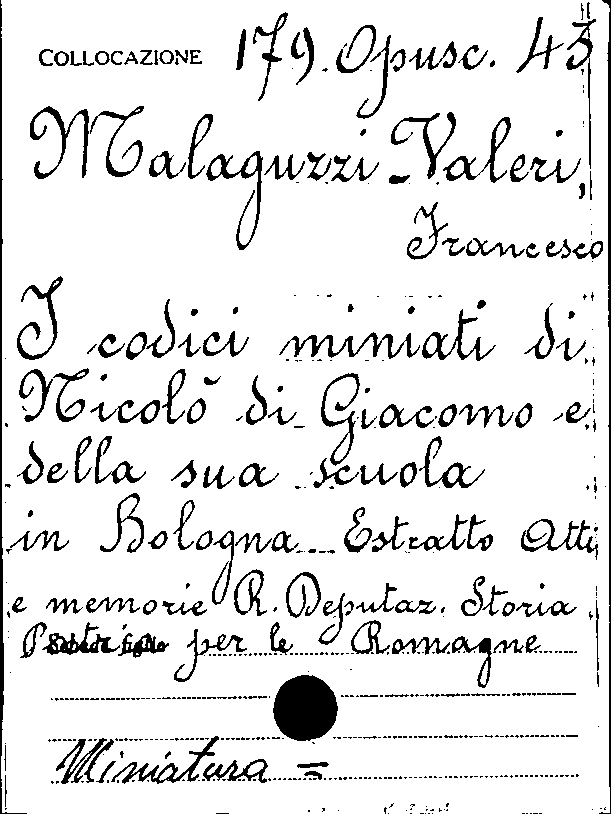 COLLOCAZIONE 179. Opusc. 43
Malaguzzi-Valeri,
Francesco
I codici miniati di
Nicolò di Giacomo e
della sua scuola
in Bologna - Estratto Atti
e memorie R. Deputaz. Storia
Patria per le Romagne
Miniatura =